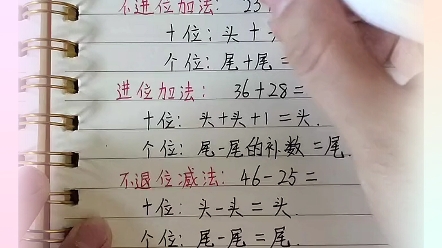 不进位加法: 23
十位: 头+
个位: 尾+尾=
进位加法: 36+28=
十位: 头+头+1=头.
个位: 尾-尾的补数=尾.
不退位减法: 46-25=
十位: 头-头=头.
个位: 尾-尾=尾.